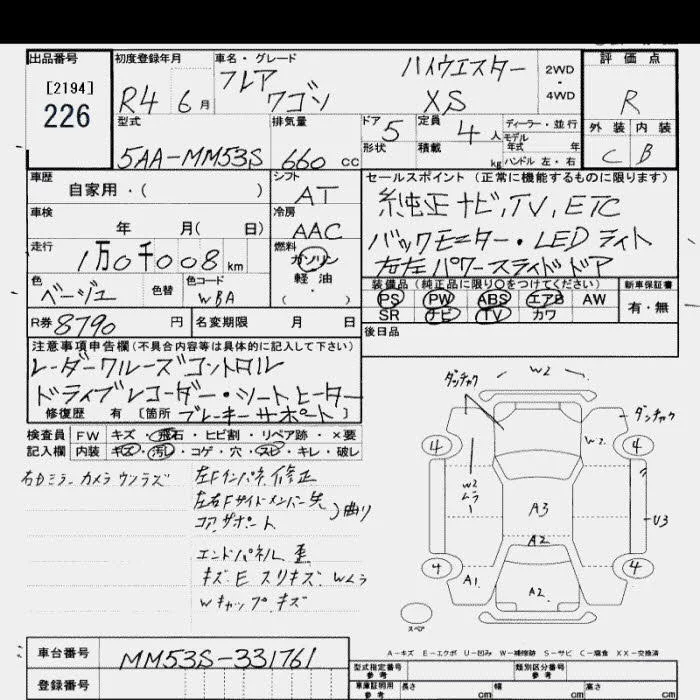 出品番号
[2194]
226
初度登録年月
R4 6月
車名・グレード
フレア ハイウエスター
ワゴン XS
2WD・4WD
評価点
R
外装 内装
C B
型式
5AA-MM53S
排気量
660 cc
ドア
5
形状
定員
4人
積載
kg
ディーラー・並行
モデル年式 年
ハンドル 左・右
車歴
自家用・( )
シフト
AT
車検
年 月( 日)
冷房
AAC
走行
1万0千008 km
燃料
ガソリン
軽油
・( )
色
ベージュ
色替
色コード
WBA
R券 8790 円
名変期限 月 日
セールスポイント (正常に機能するものに限ります)
純正ナビ,TV,ETC
バックモニター・LEDライト
右左パワースライドドア
装備品(純正品に限り○をつけてください)
PS PW ABS エアB AW
SR ナビ TV カワ
新車保証書
有・無
後日品
注意事項申告欄(不具合内容等は具体的に記入して下さい)
レーダークルーズコントロル
ドライブレコーダー・シートヒーター
修復歴 有 [箇所 ブレーキサポート]
検査員記入欄
FW キズ・飛石・ヒビ割・リペア跡・×要
内装 キズ・汚レ・コゲ・穴・スレ・キレ・破レ
右Dミラーカメラウンラズ
左Fインパネ修正
左右Fサイドメンバー先
コアサポート 曲り
エンドパネル 歪
キズ E スリキズ Wムラ
Wキャップキズ
ダンチャク
W2
ダンチャク
W2
4
4
W2
ムラ
A3
U3
A2
4
4
A1
A2
スペア
A-キズ E-エクボ U-凹み W-補修跡 S-サビ C-腐食 XX-交換済
車台番号
MM53S-331761
登録番号
型式指定番号
参考
類別区分番号
参考
車庫証明用
参考
長さ cm
幅 cm
高さ cm